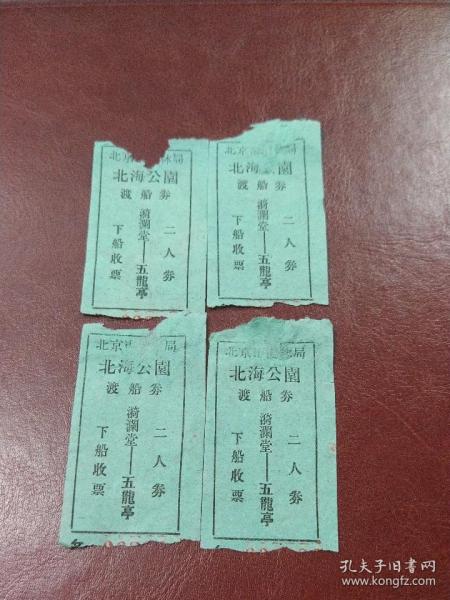 北京 林局
北海公園
渡船券
二人券
漪瀾堂——五龍亭
下船收票
北京 局
北海公園
渡船券
二人券
漪瀾堂——五龍亭
下船收票
北京 局
北海公園
渡船券
二人券
漪瀾堂——五龍亭
下船收票
北京 局
北海公園
渡船券
二人券
漪瀾堂——五龍亭
下船收票
孔夫子旧书网
www.kongfz.com